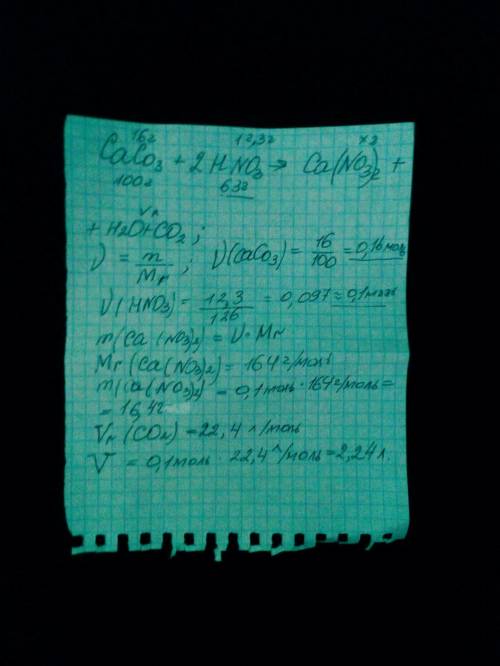 16г 12,3г x г
CaCO3 + 2HNO3 → Ca(NO3)2 +
100г 63г
+ H2O + CO2 ;
ν = m/Mr ; ν(CaCO3) = 16/100 = 0,16 моль
ν(HNO3) = 12,3/126 = 0,097 ≈ 0,1 моль
m(Ca(NO3)2) = ν · Mr
Mr(Ca(NO3)2) = 164 г/моль
m(Ca(NO3)2) = 0,1 моль · 164 г/моль =
= 16,4г
(CO2) = 22,4 л/моль
V = 0,1 моль · 22,4 л/моль = 2,24 л.